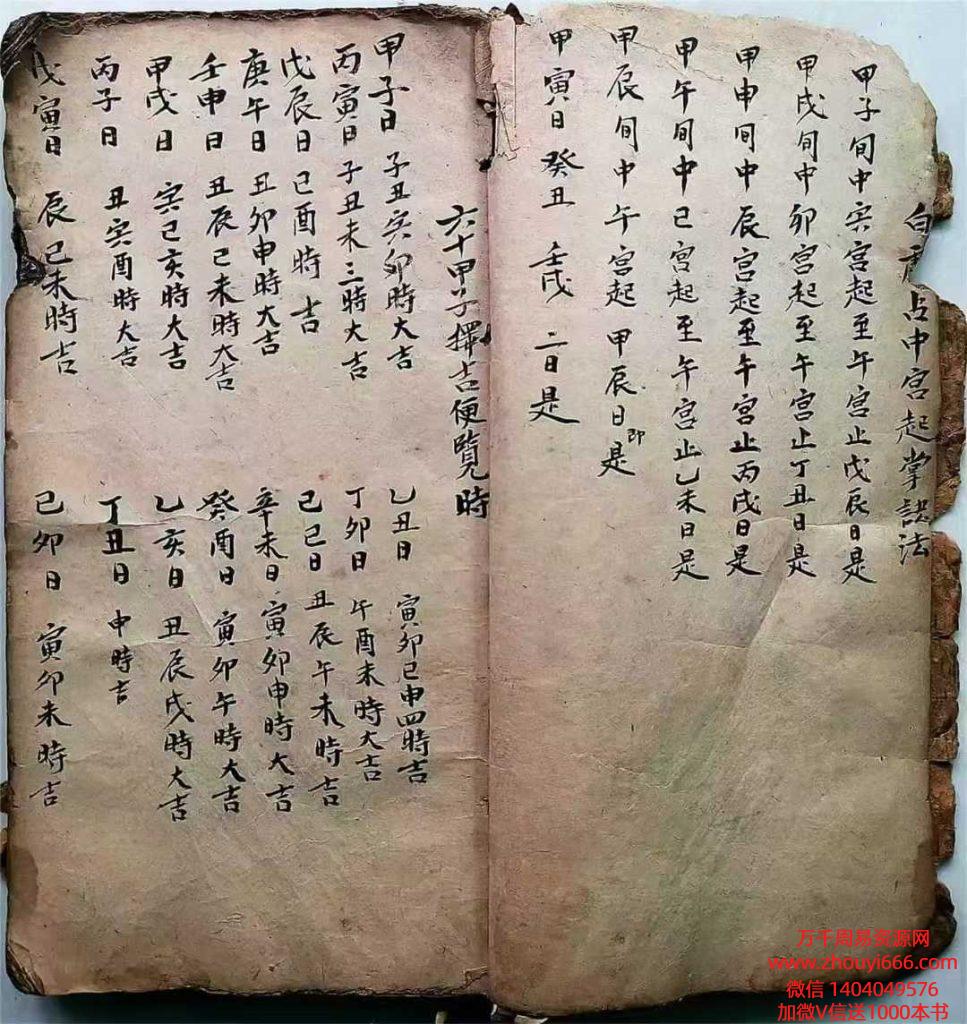 白虎占中宮起掌訣法
甲子旬中寅宮起至午宮止戊辰日是
甲戌旬中卯宮起至午宮止丁丑日是
甲申旬中辰宮起至午宮止丙戌日是
甲午旬中巳宮起至午宮止乙未日是
甲辰旬中午宮起甲辰日即是
甲寅日癸丑壬戌二日是
六十甲子擇吉便覽時
甲子日 子丑寅卯時大吉
乙丑日 寅卯巳申四時吉
丙寅日 子丑未三時大吉
丁卯日 午酉未時大吉
戊辰日 巳酉時吉
己巳日 丑辰午未時吉
庚午日 丑卯申時大吉
辛未日 寅卯申時大吉
壬申日 丑辰巳未時大吉
癸酉日 寅卯午時大吉
甲戌日 寅巳亥時大吉
乙亥日 丑辰戌時大吉
丙子日 丑寅酉時吉
丁丑日 申時吉
戊寅日 辰巳未時吉
己卯日 寅卯未時吉
万千周易资源网
www.zhouyi666.com
微信 1404049576
加微V信送1000本书